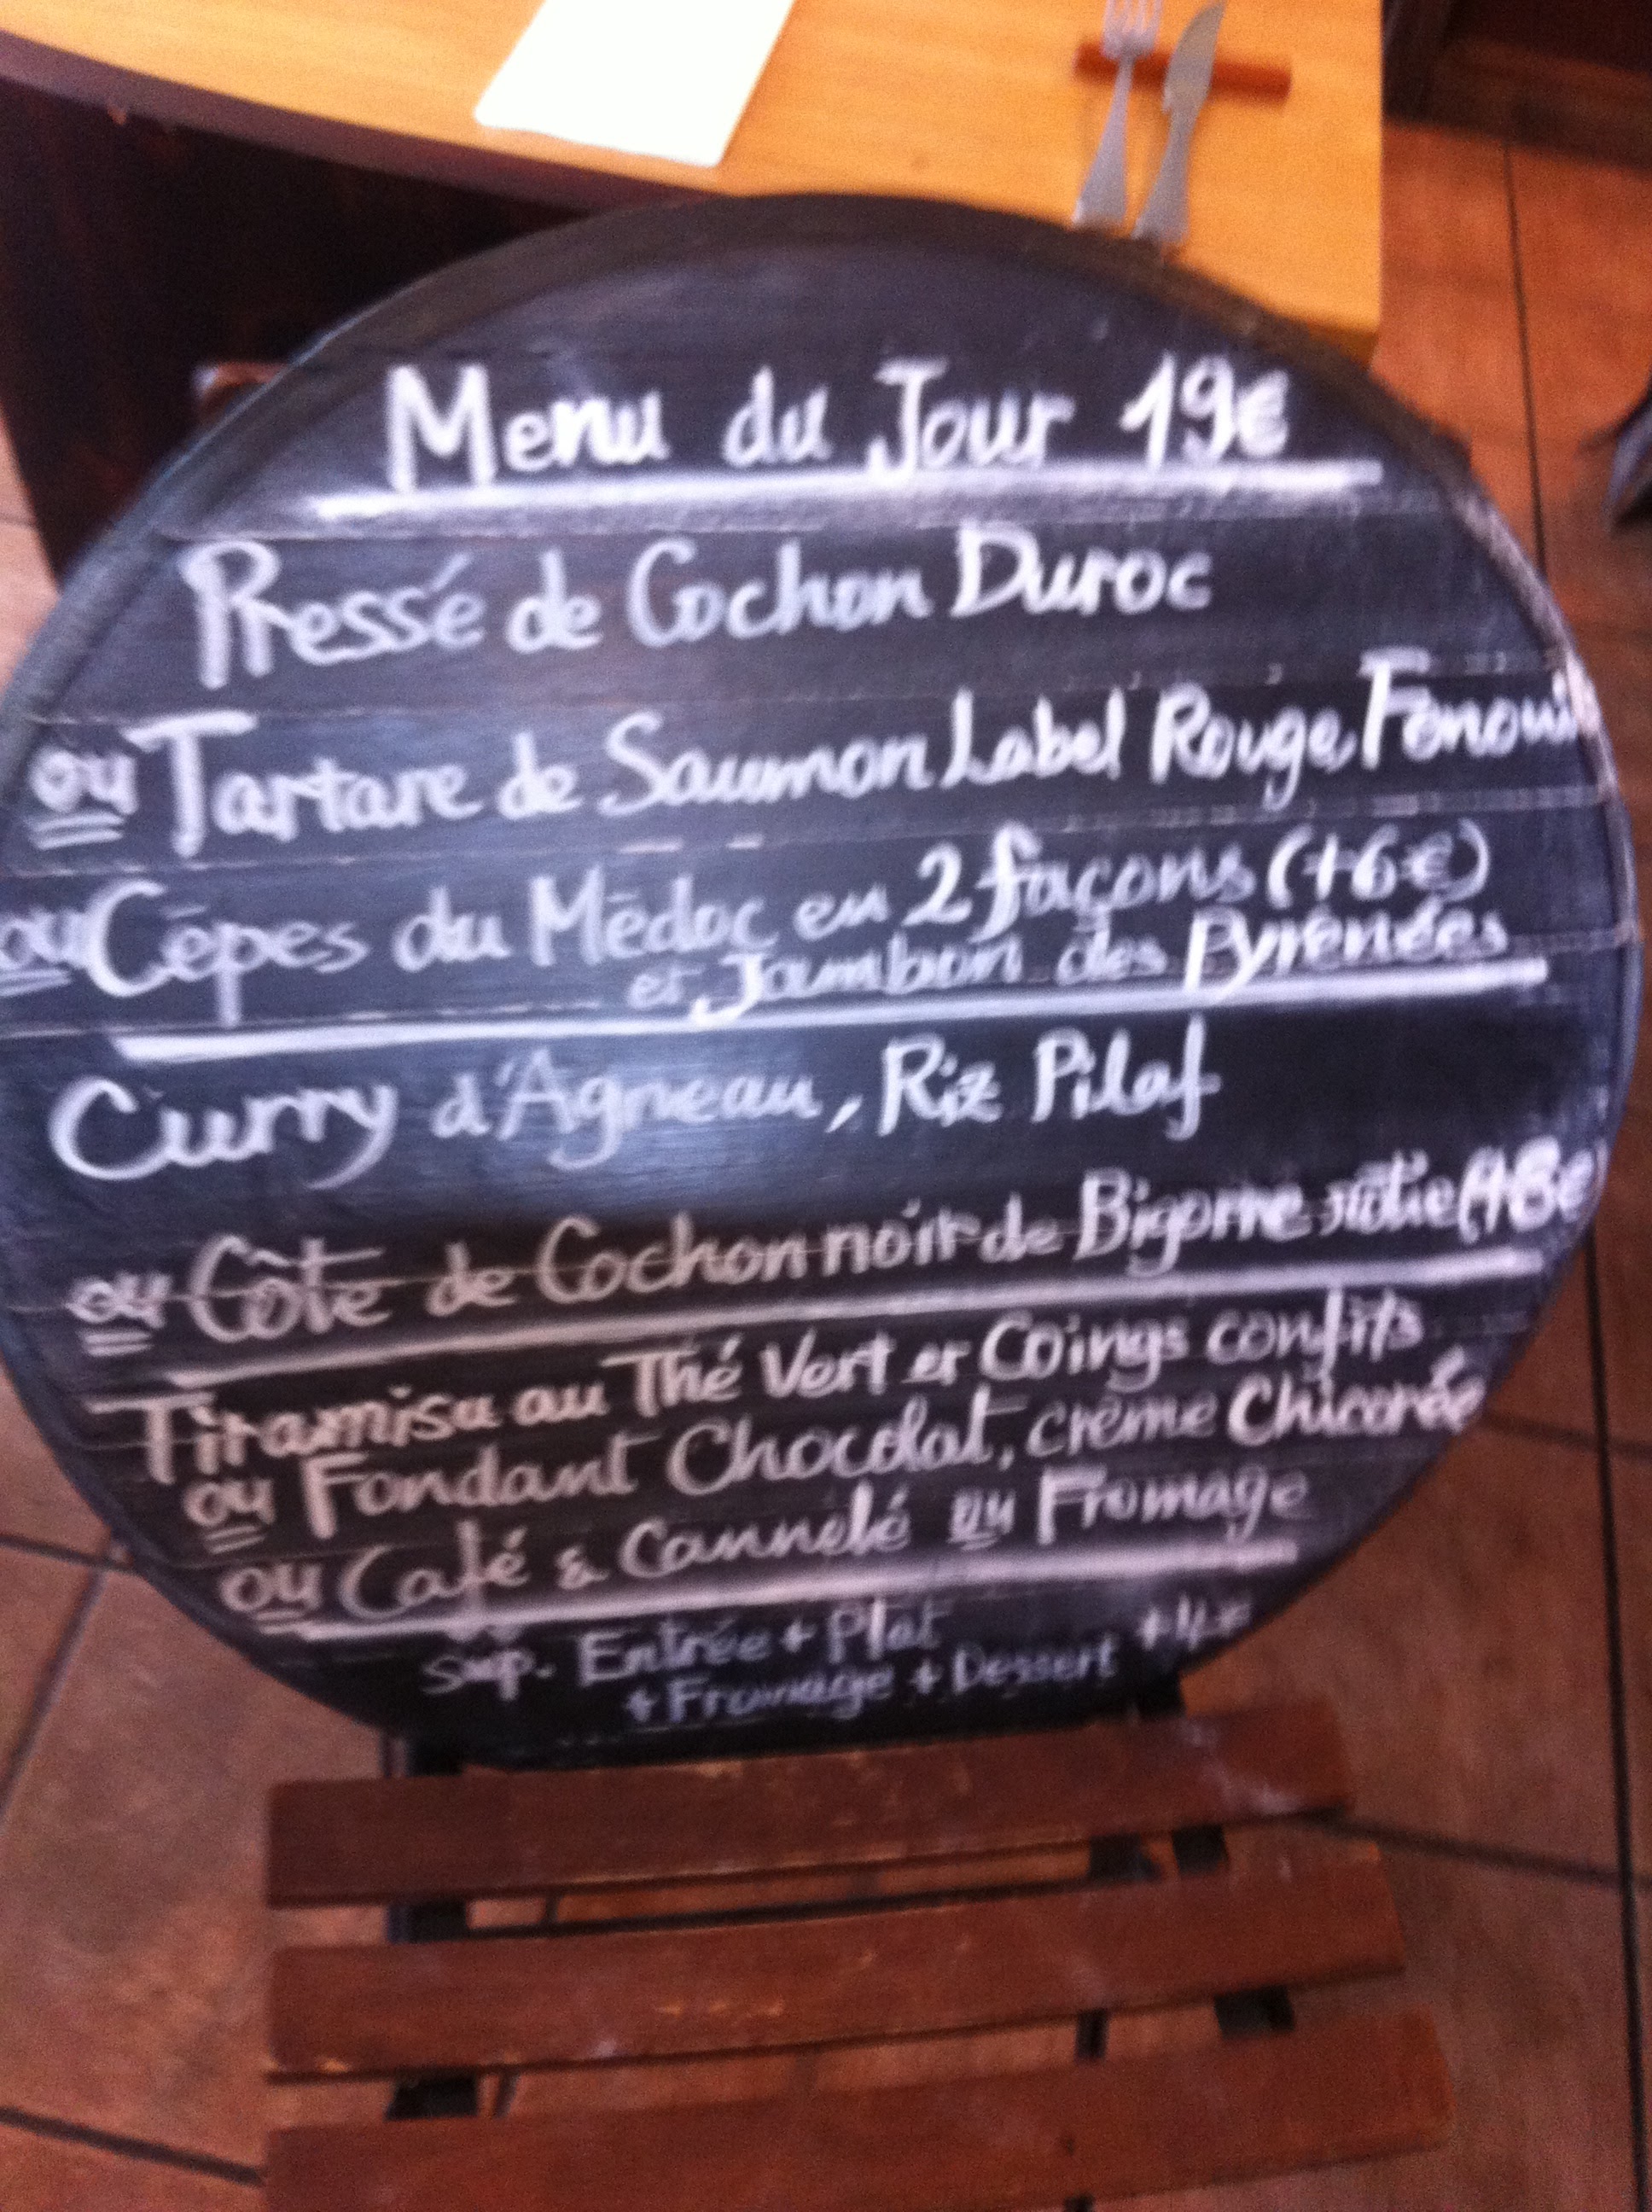 Menu du Jour 19€
Pressé de Cochon Duroc
ou Tartare de Saumon Label Rouge, Fenouil
ou Cêpes du Médoc en 2 façons (+6€)
et Jambon des Pyrénées
Curry d'Agneau, Riz Pilaf
ou Côte de Cochon noir de Bigorre rôtie (+8€)
Tiramisu au Thé Vert et Coings confits
ou Fondant Chocolat, crème Chicorée
ou Café & Cannelé ou Fromage
sup. Entrée + Plat
+ Fromage + Dessert +4€